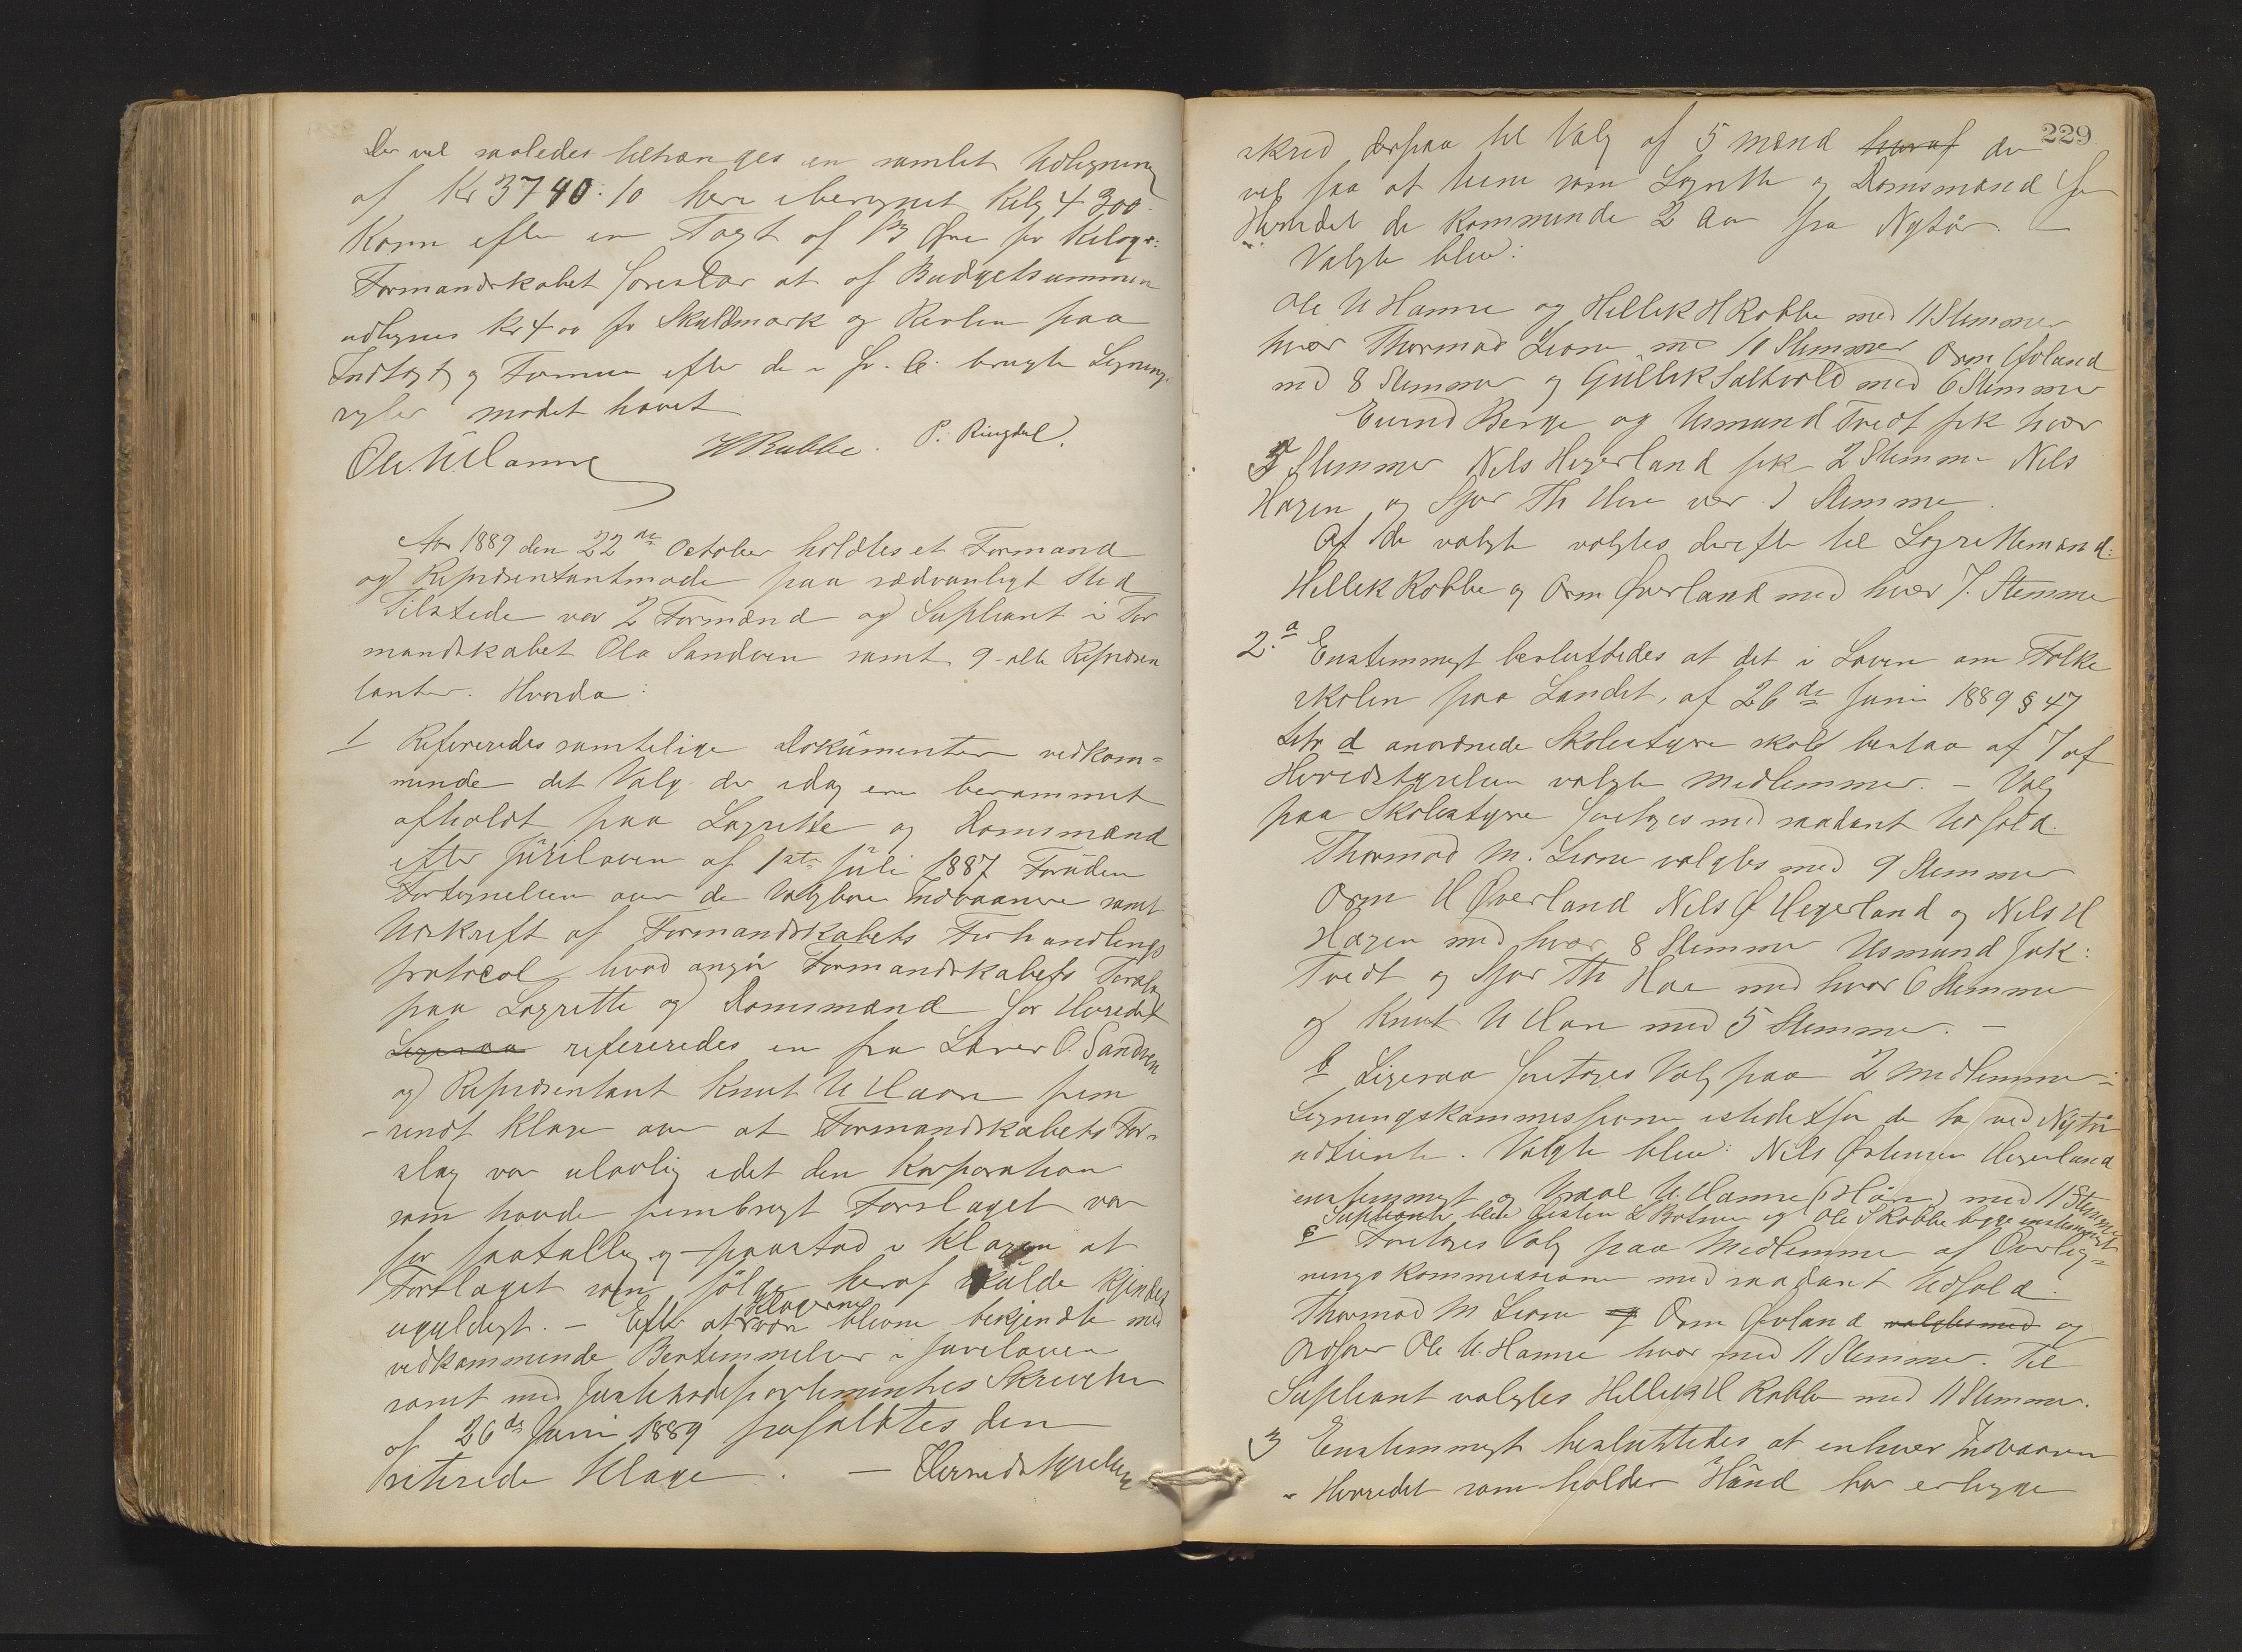 Der vil saaledes tiltrænges en samlet Udligning
af Kr 3740.10 heri iberegnet Kilg 4300
Korn efter en Taxt af 13 Øre pr Kilogr:
Formandskabet foreslaar at af Budgetsummen
udlignes Kr 4 00 pr Skuldmark og Resten paa
Indtægt og Formue efter de i fr. A. brugte Lignings
regler mødet hævet
Ole. N. Hamre HRabbe. P. Ringdal.
Aar 1889 den 22de October holdtes et Formand
og Repræsentantmøde paa sædvanligt Sted
Tilstede var 2 Formænd og Supleant i For
mandskabet Ola Sandven samt 9 alle Repræsen
tanter. Hvorda:
1 Refereredes samtelige Dokumenter vedkom=
mende det Valg der idag er berammet
afholdt paa Lagrette og Domsmænd
efter Juriloven af 1ste Juli 1887 Foruden
Fortegnelsen over de Valgbare Indvaanere samt
Udskrift af Formandskabets Forhandlings
protocol, hvad angår Formandskabets Forslag
paa Lagrette og Domsmænd for Herredet
Ligesaa refereredes en fra Lærer O. Sandven
og Repræsentant Knut N Haare frem
-sendt Klage over at Formandskabets For-
slag var ulovlig idet den Korporation
som havde frembragt Forslaget var
for faatallig og paastod i Klagen at
Forslaget som følge heraf skulde kjendes
ugyldigt. - Efter at Klagerne
vare blevne bekjendte med
vedkommende Bestemmelser i Juriloven
samt med Justitsdepartementets Skrivelse
af 26de Juni 1889 frafaldtes den
siterede Klage. - Herredstyrelsen
229
skred derpaa til Valg af 5 mænd hvoraf der
vel paa at tiene som Lagrette og Domsmænd for
Herredet de kommende 2 Aar fra Nytår. -
Valgte blev:
Ole N Hamre og Hellik H Rabbe med 11 Stemmer
hver Thormod Lione med 10 Stemmer Orm Øvland
med 8 Stemmer og Gullik Saltvold med 6 Stemmer
Eivind Berge og Asmund Tvedt fik hver
3 Stemmer Nels Hegerland fik 2 Stemmer Nels
Hagen og Sjur Th Aase ver 1 Stemme.
Af de valgte valgtes derefter til Lagrettemænd:
Hellek Rabbe og Orm Øverland med hver 7. Stemmer
2.a Enstemmigt besluttedes at det i Loven om Folke
skolen paa Landet, af 26de Juni 1889 § 47
Litr d anordnede Skolestyre skal bestaa af 7 af
Heredstyrelsen valgte Medlemmer. - Valg
paa Skolestyre foretoges med saadant Udfald.
Thormod M. Lione valgtes med 9 Stemmer
Orm H Øverland Nels Ø Hegerland og Nels H
Hagen med hver 8 Stemmer Asmund Jak:
Tvedt og Sjur Th Haa med hver 6 Stemmer
og Knut N Haare med 5 Stemmer. -
b Ligesaa foretoges Valg paa 2 Medlemmer i
Ligningskommissionen istedetfor de to ved Nytår
udtiente. Valgte blev: Nels Østensen Hegerland
enstemmigt og N. Hamre (Hår) med 11 Stemmer
Supleante blev Øisten L Botnen og Ole S Rabbe begge enstemmigt
c Foretoges Valg paa Medlemmer af Overlig=
ningskommissionen med saadant Udfald.
Thormod M Lione og Orm Øvland valgtes med og
Ordfører Ole N. Hamre hver med 11 Stemmer. Til
Supleant valgtes Hellik H Rabbe med 11 Stemmer.
3 Enstemmigt besluttedes at enhver Indvaaner
i Herredet som holder Hund har erlægge